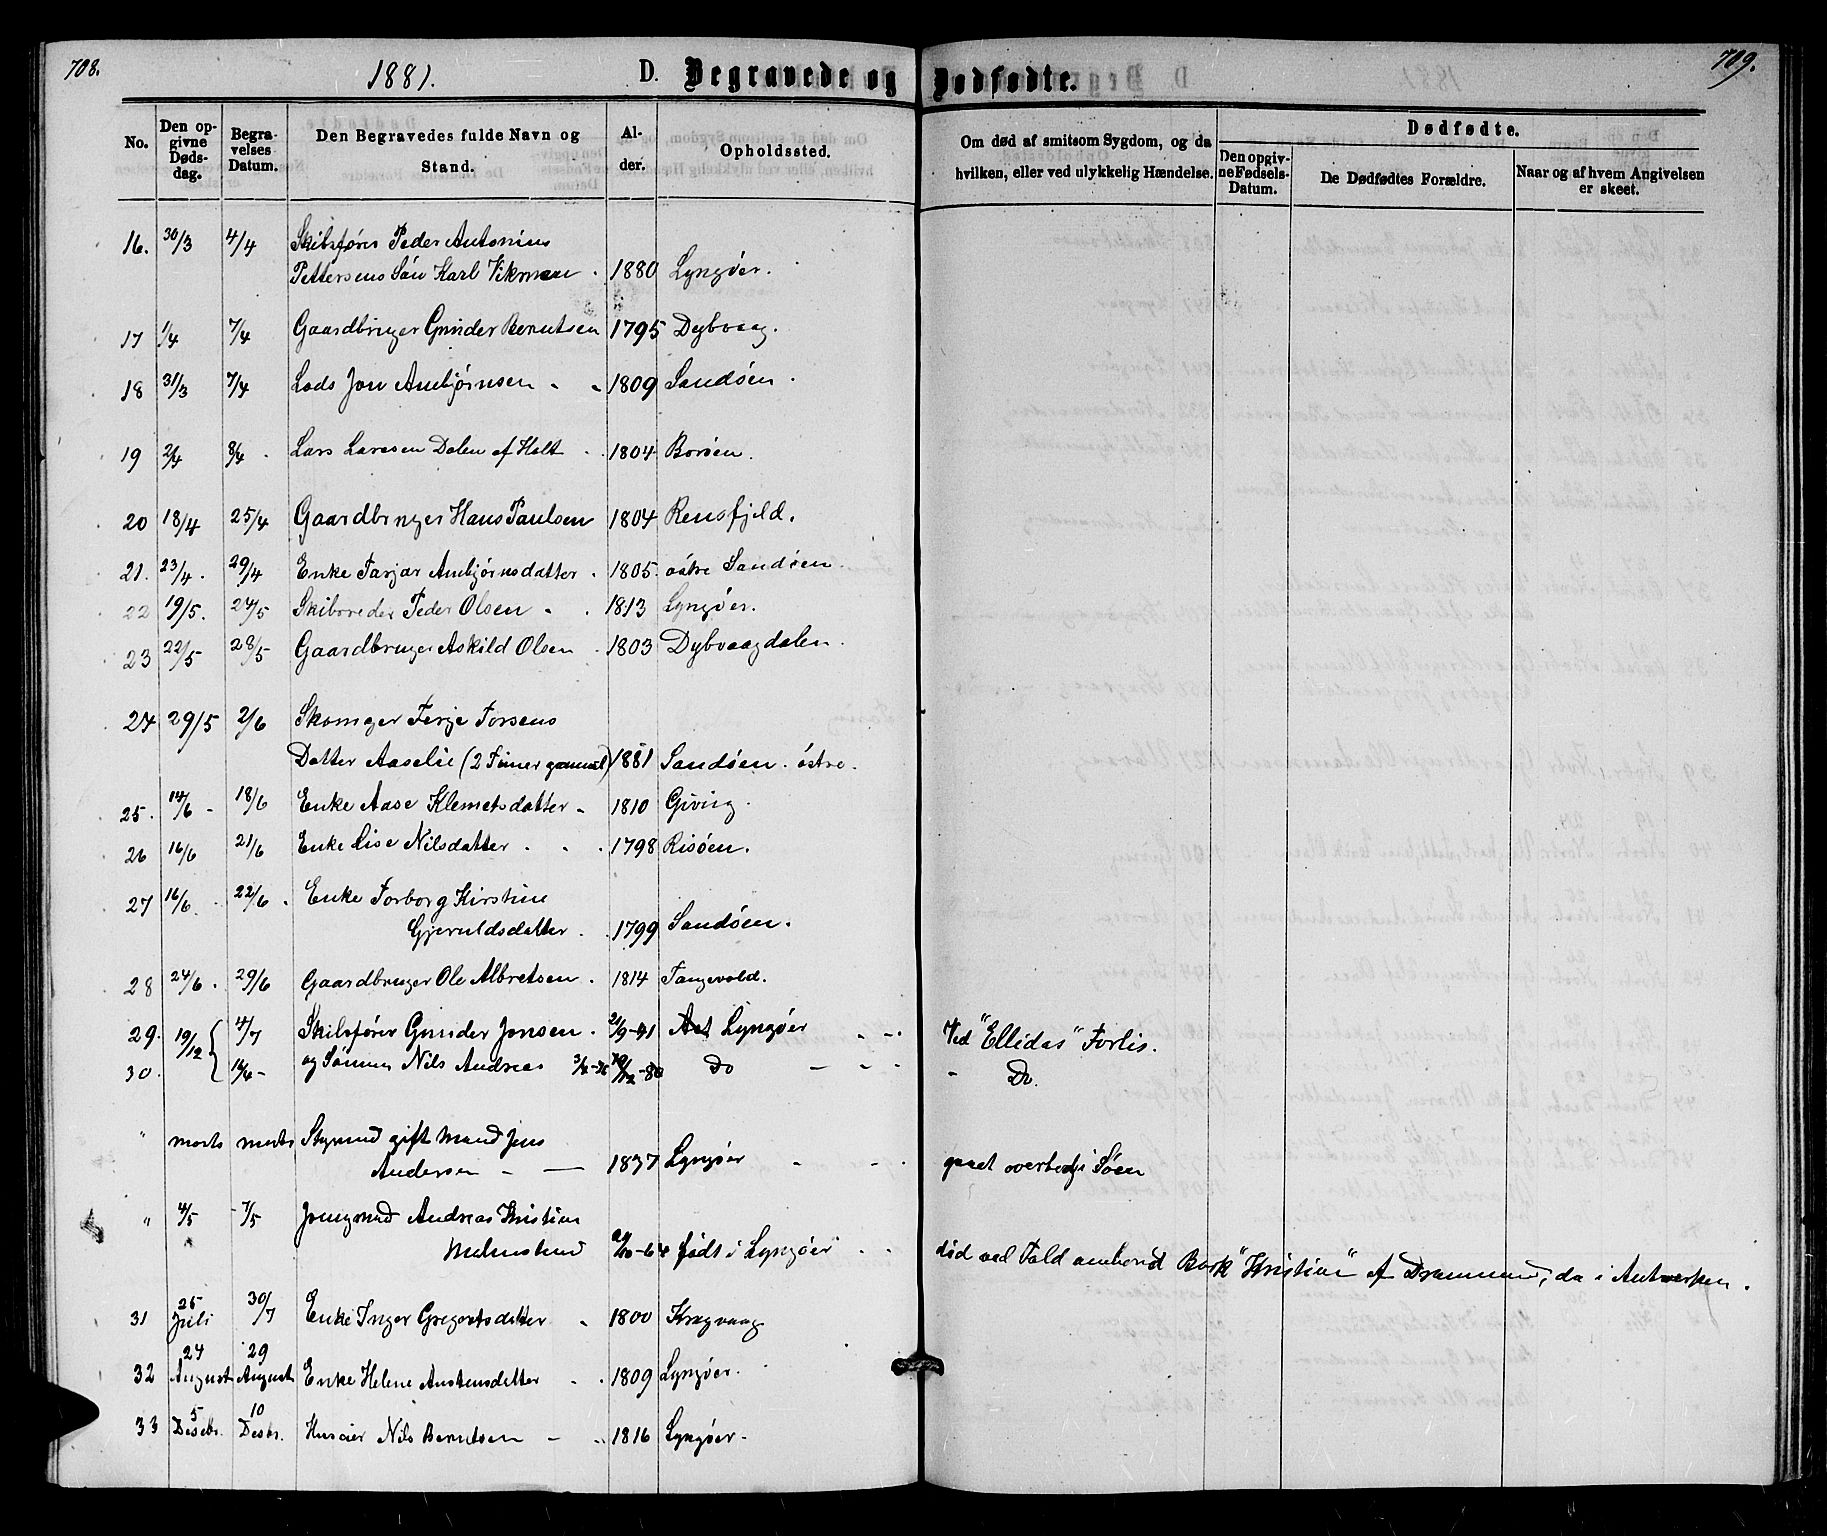 708.
1881.
D. Begravede og Dødfødte.
709.
No.
Den opgivne Dødsdag.
Begravelses Datum.
Den Begravedes fulde Navn og Stand.
Alder.
Opholdssted.
Om død af smitsom Sygdom, og da hvilken, eller ved ulykkelig Hændelse.
Dødfødte.
Den opgivne Fødsels-Datum.
De Dødfødtes Forældre.
Naar og af hvem Angivelsen er skeet.
16. 30/3 4/4 Skibsfører Peder Antonius
Pettersens Søn Karl Vikman . 1880 Lyngøer.
17 1/4 7/4 Gaardbruger Gunder Berntsen 1795 Dybvaag.
18 31/3 7/4 Lods Jon Anbjørnsen - - 1809 Sandøen .
19 2/4 8/4 . Lars Larssen Dalen af Holt . 1804 Borøen.
20 18/4 25/4 Gaardbruger Hans Paulsen 1804 Rensfjeld.
21. 23/4. 29/4 Enke Tarjar Anbjørnsdatter . 1805. østre Sandøen.
22 19/5. 24/5 Skibsreder Peder Olsen - . 1813 Lyngøer.
23 22/5 28/5 Gaardbruger Askild Olsen . 1803 Dybvaagdalen.
24 29/5 2/6 Skomager Terje Torsens
Datter Aaselie (2 Timer gammel) 1881 Sandøen. østre.
25. 14/6 - 18/6 Enke Aase Klemetsdatter - 1810 Giving.
26 16/6 21/6 Enke Lise Nilsdatter . . . 1798 Risøen.
27 16/6. 22/6 . Enke Torborg Kirstine
Gjeruldsdatter . . 1799 Sandøen.
28 24/6 . 29/6 Gaardbruger Ole Albretsen . 1814 Tangevold.
29. 19/12 { 4/7 Skibsfører Gunder Jonsen . 21/9-41 Lyngøer - -. Ved "Ellidas" Forlis.
30. 16/4 - og Sønnen Nils Andreas Do - - - - Do.
" morts morts Styrmand gift Mand Jens
Andersen - — 1837 Lyngøer - - . gaaet overbord i Søen
" 4/5 - 7/5 Jungmand Andreas Kristian
-64 født i Lyngøer . . død ved Fald ombord Bark "Kristian" af Drammen, da i Antwerpen.
31 25 Juli 30/7 Enke Inger Gregertsdatter - 1800 Kragvaag
32 24 August 29 August Enke Helene Anstensdatter - . 1809 Lyngøer.
33 5 Desebr. 10 Desbr. Huseier Nils Berntsen - - 1816 Lyngøer.